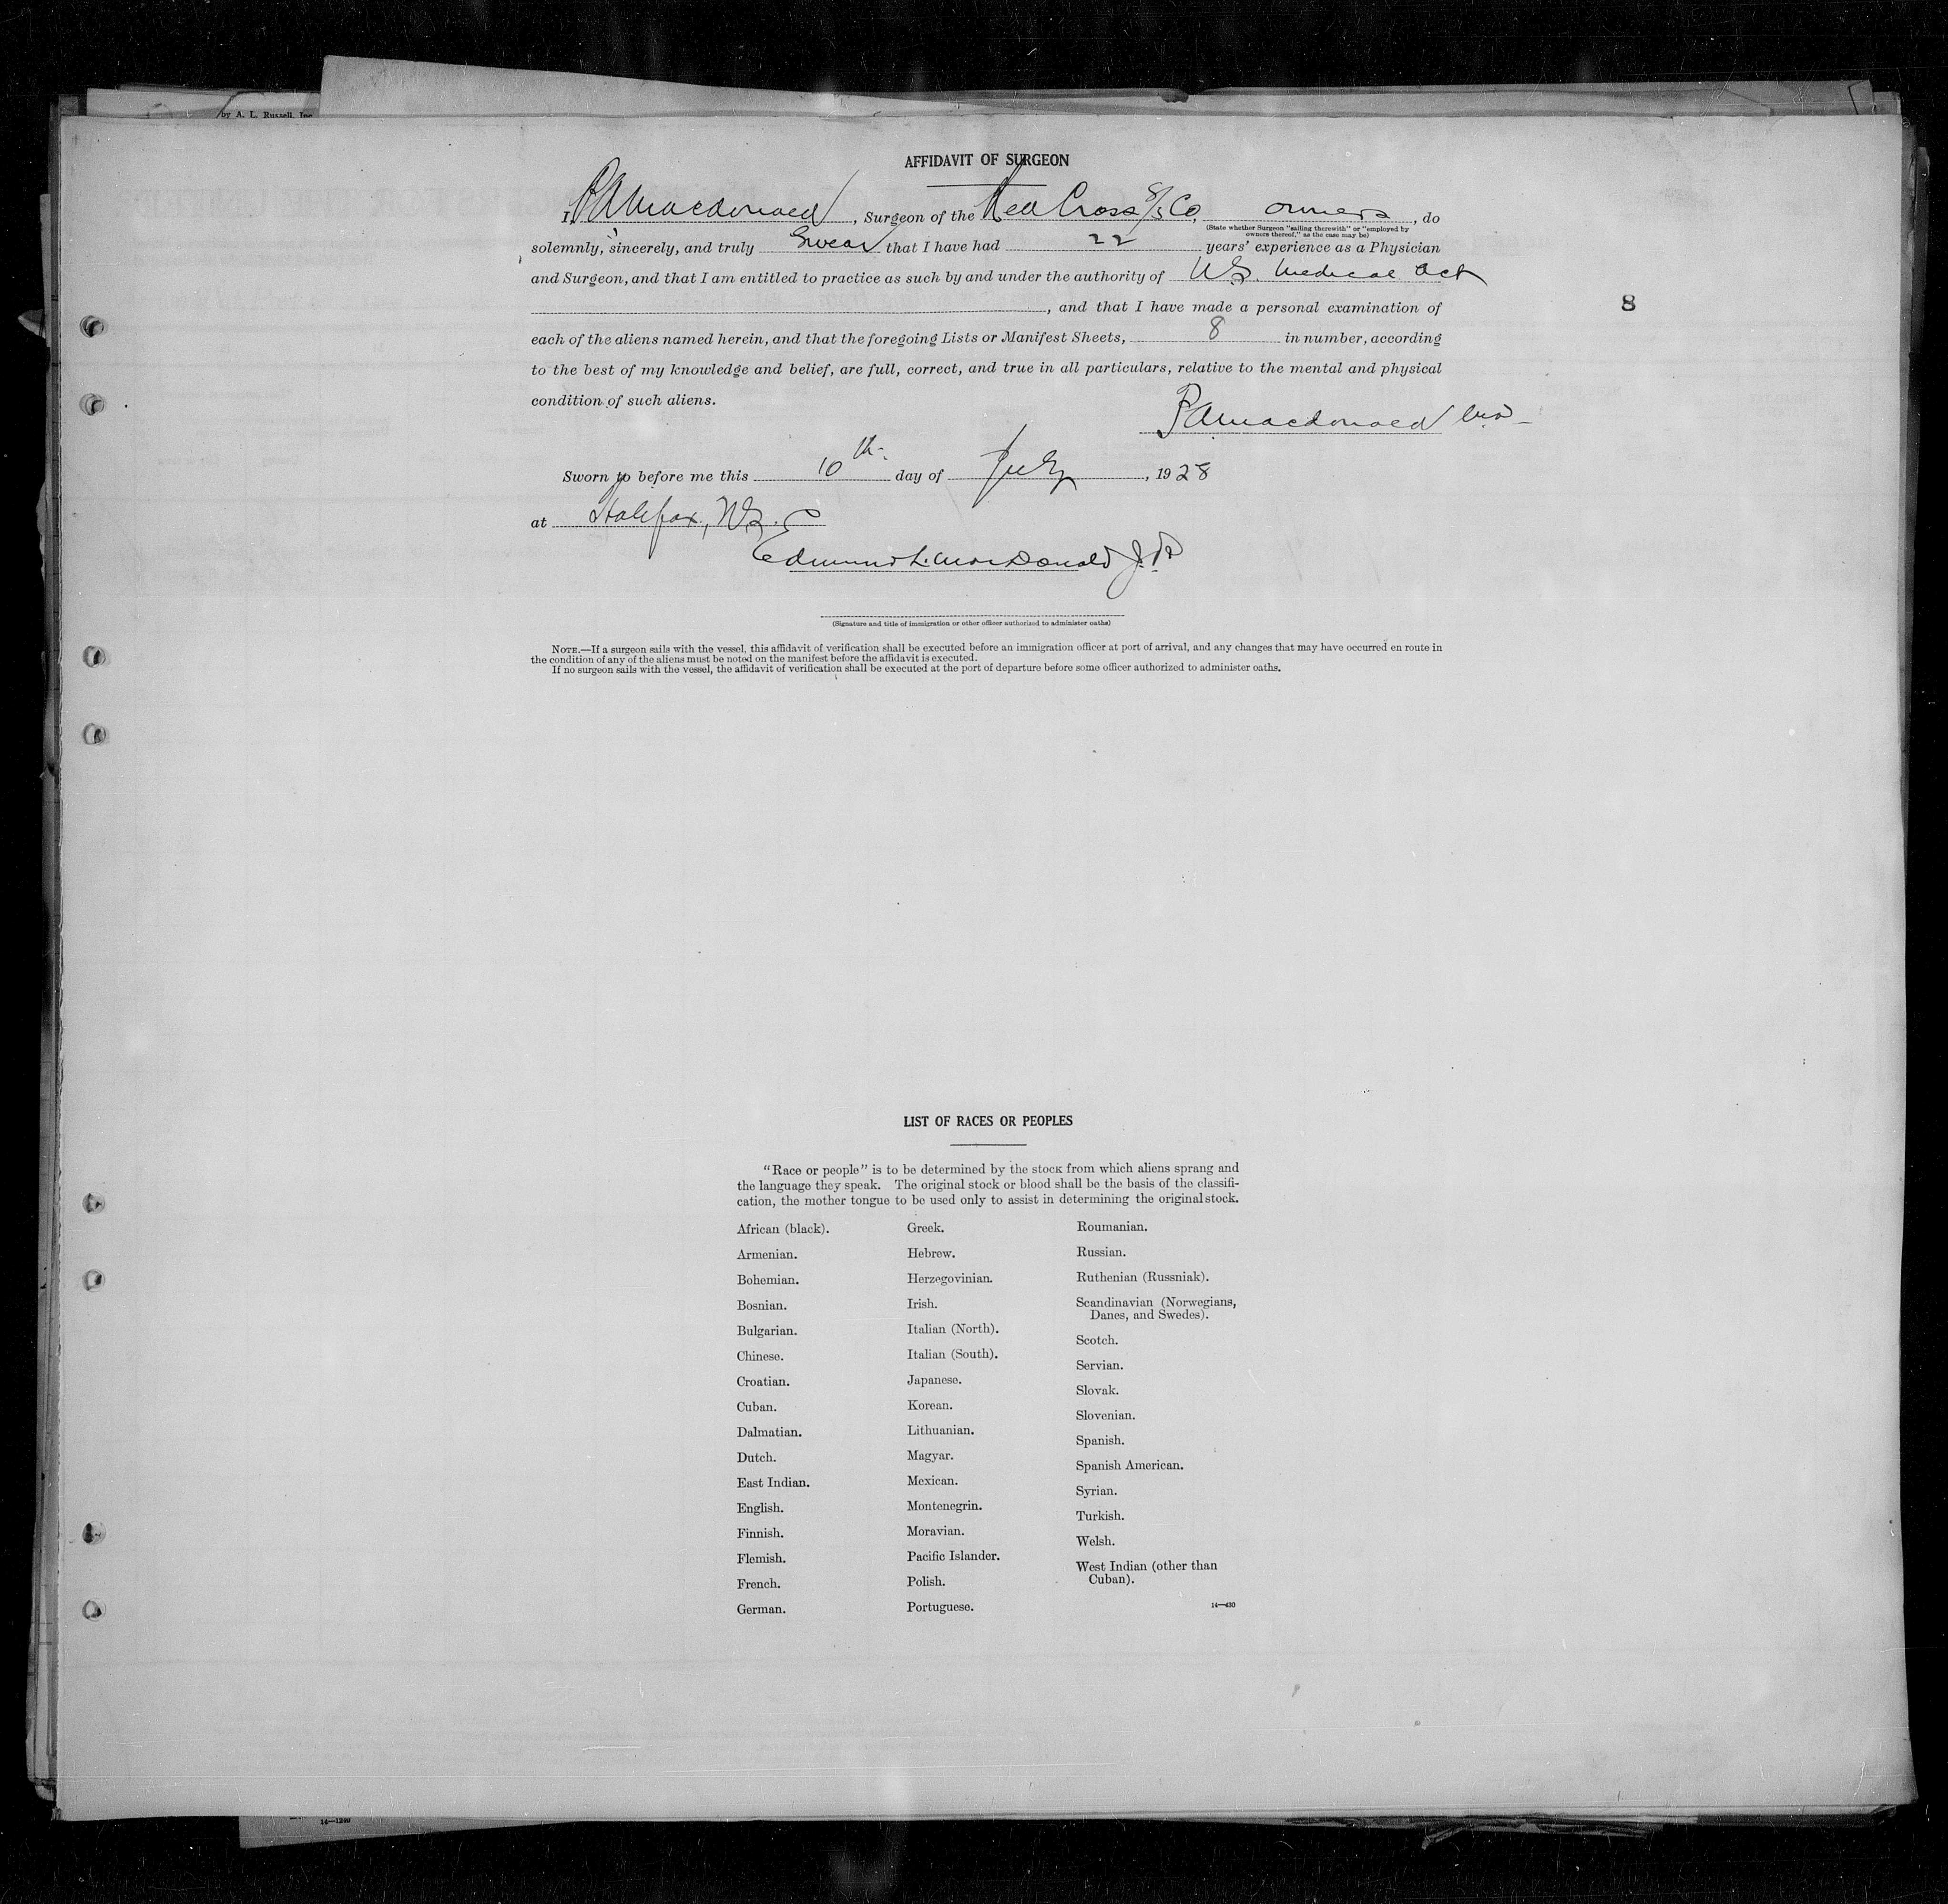 by A. L. Russell, Inc
AFFIDAVIT OF SURGEON
I, P A Macdonald, Surgeon of the Red Cross S/S Co, owners, do
(State whether Surgeon "sailing therewith" or "employed by
owners thereof," as the case may be)
solemnly, sincerely, and truly Swear that I have had 22 years' experience as a Physician
and Surgeon, and that I am entitled to practice as such by and under the authority of N.S. Medical Act
, and that I have made a personal examination of
8
each of the aliens named herein, and that the foregoing Lists or Manifest Sheets, 8 in number, according
to the best of my knowledge and belief, are full, correct, and true in all particulars, relative to the mental and physical
condition of such aliens.
P A Macdonald M.D
Sworn to before me this 10th day of July, 1928
at Halifax, N.S.
Edmund L. MacDonald J.P.
(Signature and title of immigration or other officer authorized to administer oaths)
NOTE.—If a surgeon sails with the vessel, this affidavit of verification shall be executed before an immigration officer at port of arrival, and any changes that may have occurred en route in
the condition of any of the aliens must be noted on the manifest before the affidavit is executed.
If no surgeon sails with the vessel, the affidavit of verification shall be executed at the port of departure before some officer authorized to administer oaths.
LIST OF RACES OR PEOPLES
"Race or people" is to be determined by the stock from which aliens sprang and
the language they speak. The original stock or blood shall be the basis of the classifi-
cation, the mother tongue to be used only to assist in determining the original stock.
African (black).
Armenian.
Bohemian.
Bosnian.
Bulgarian.
Chinese.
Croatian.
Cuban.
Dalmatian.
Dutch.
East Indian.
English.
Finnish.
Flemish.
French.
German.
Greek.
Hebrew.
Herzegovinian.
Irish.
Italian (North).
Italian (South).
Japanese.
Korean.
Lithuanian.
Magyar.
Mexican.
Montenegrin.
Moravian.
Pacific Islander.
Polish.
Portuguese.
Roumanian.
Russian.
Ruthenian (Russniak).
Scandinavian (Norwegians,
Danes, and Swedes).
Scotch.
Servian.
Slovak.
Slovenian.
Spanish.
Spanish American.
Syrian.
Turkish.
Welsh.
West Indian (other than
Cuban).
14—430
14—1240